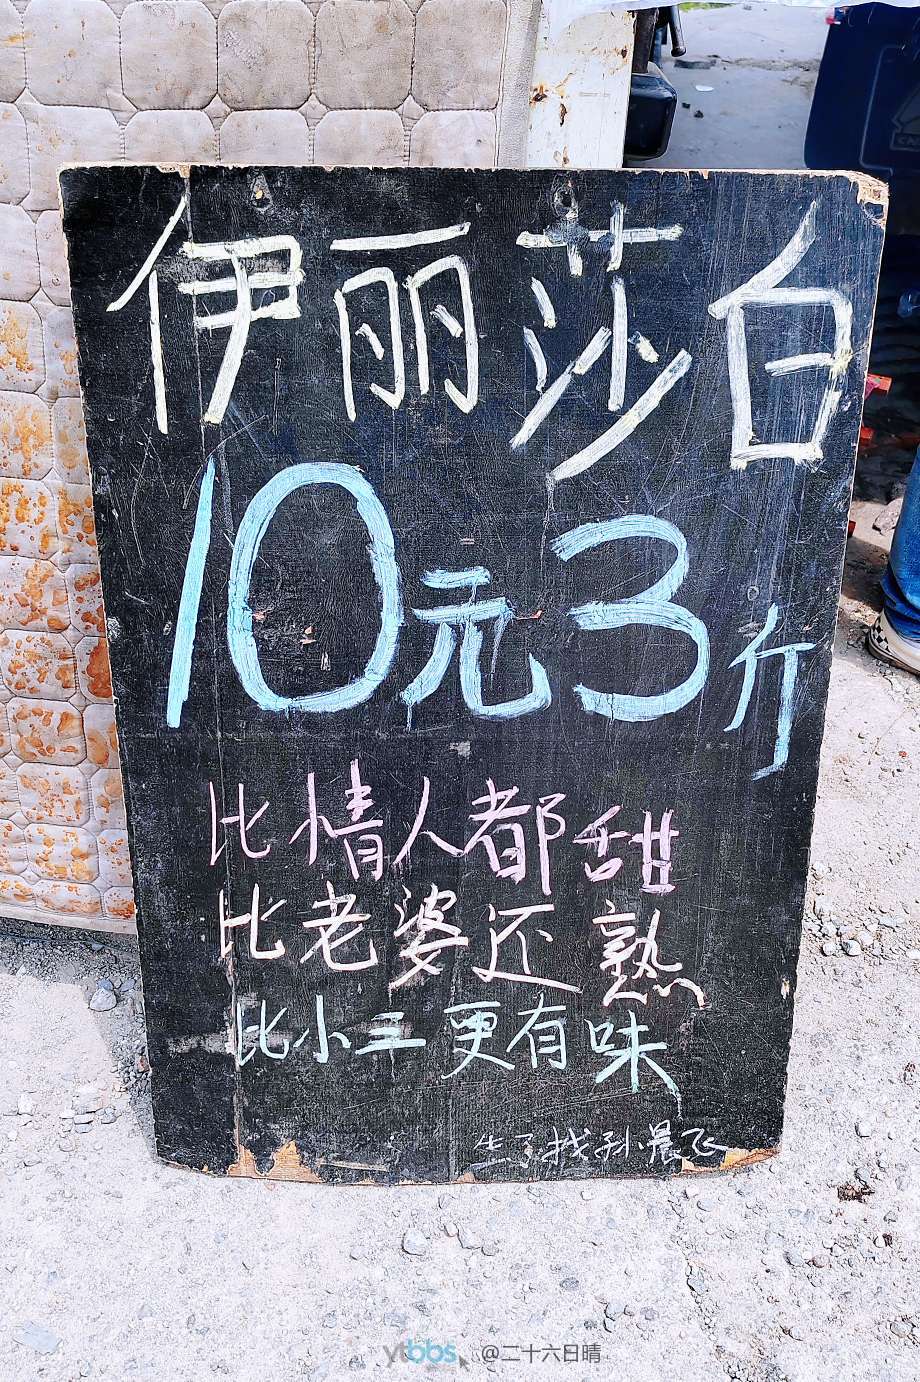 伊丽莎白
10元3斤
比情人都甜
比老婆还熟
比小三更有味
生了找孙晨飞
ytbbs @二十六日晴